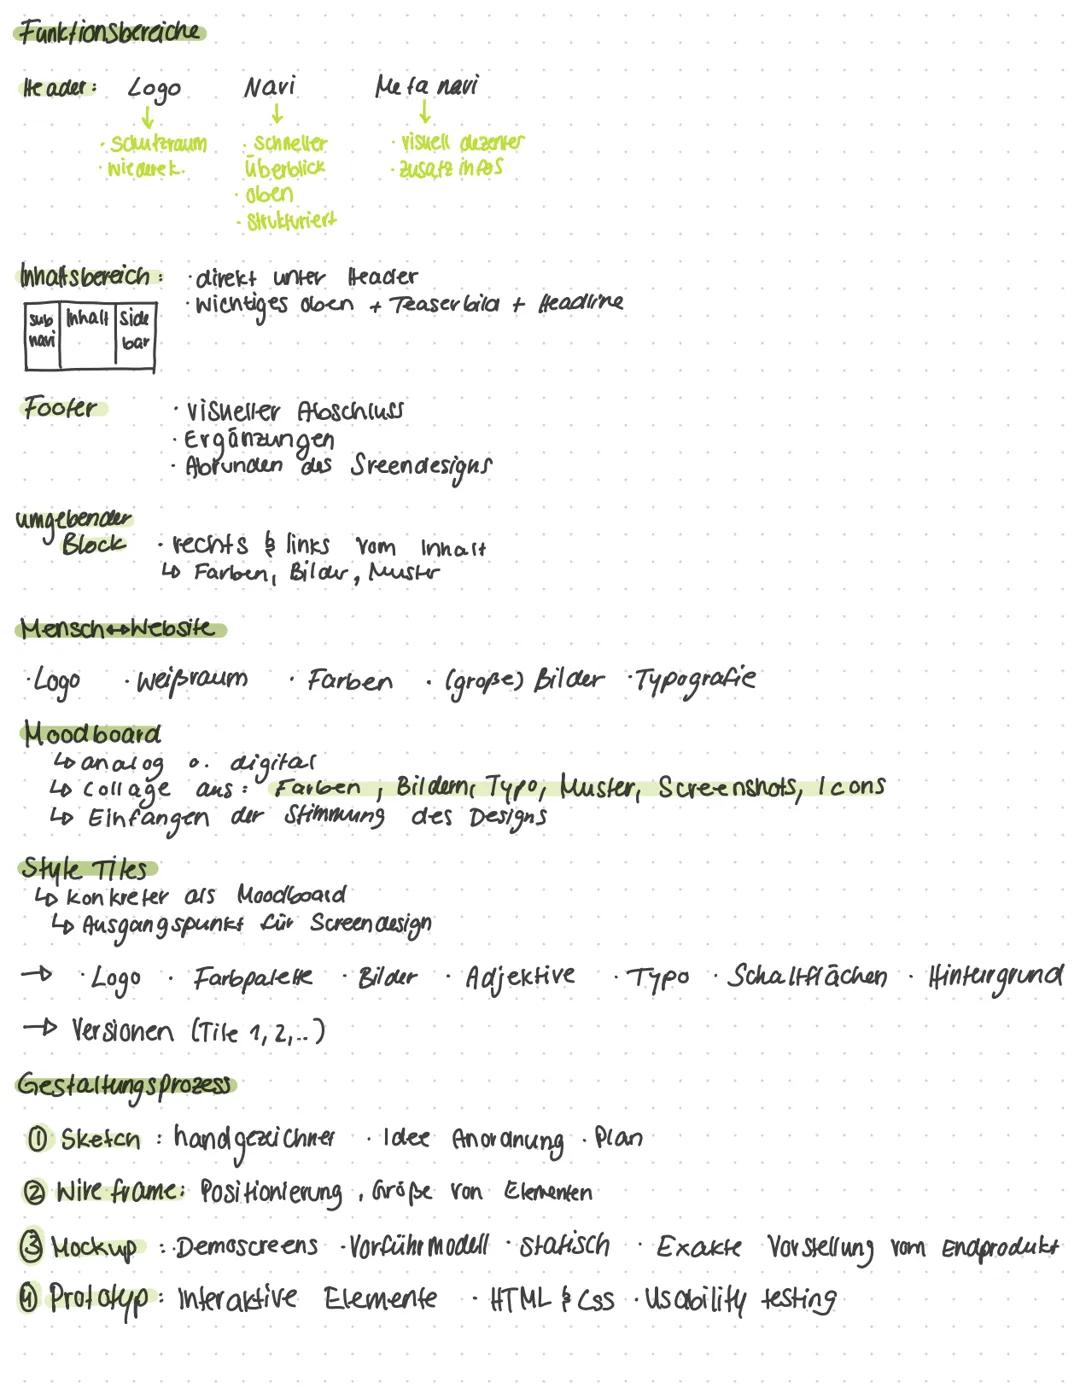 Funktionsbereiche
Header: Logo Navi Meta navi
↓ ↓ ↓
· Schutzraum · schneller · visuell dezenter
· wiederek. Überblick · zusatz infos
· oben
· strukturiert
Inhaltsbereich: · direkt unter Header
· Wichtiges oben + Teaserbild + Headline
sub navi Inhalt Side bar
Footer · visueller Abschluss
· Ergänzungen
· Abrunden des Sreendesigns
umgebender
Block · rechts & links vom Inhalt
↳ Farben, Bilder, Muster
Mensch↔Website
· Logo · weißraum · Farben · (große) Bilder · Typografie
Moodboard
↳ analog o. digital
↳ Collage aus: Farben, Bildern, Typo, Muster, Screenshots, Icons
↳ Einfangen der Stimmung des Designs
Style Tiles
↳ konkreter als Moodboard
↳ Ausgangspunkt für Screendesign
→ · Logo · Farbpalette · Bilder · Adjektive · Typo · Schaltflächen · Hintergrund
→ Versionen (Tile 1, 2,..)
Gestaltungsprozess
① Sketch : handgezeichner · Idee Anordnung · Plan
② Wireframe: Positionierung, Größe von Elementen
③ Mockup : · Demoscreens · Vorführmodell · statisch · Exakte Vorstellung vom Endprodukt
④ Prototyp: Interaktive Elemente · HTML & Css · Usability testing